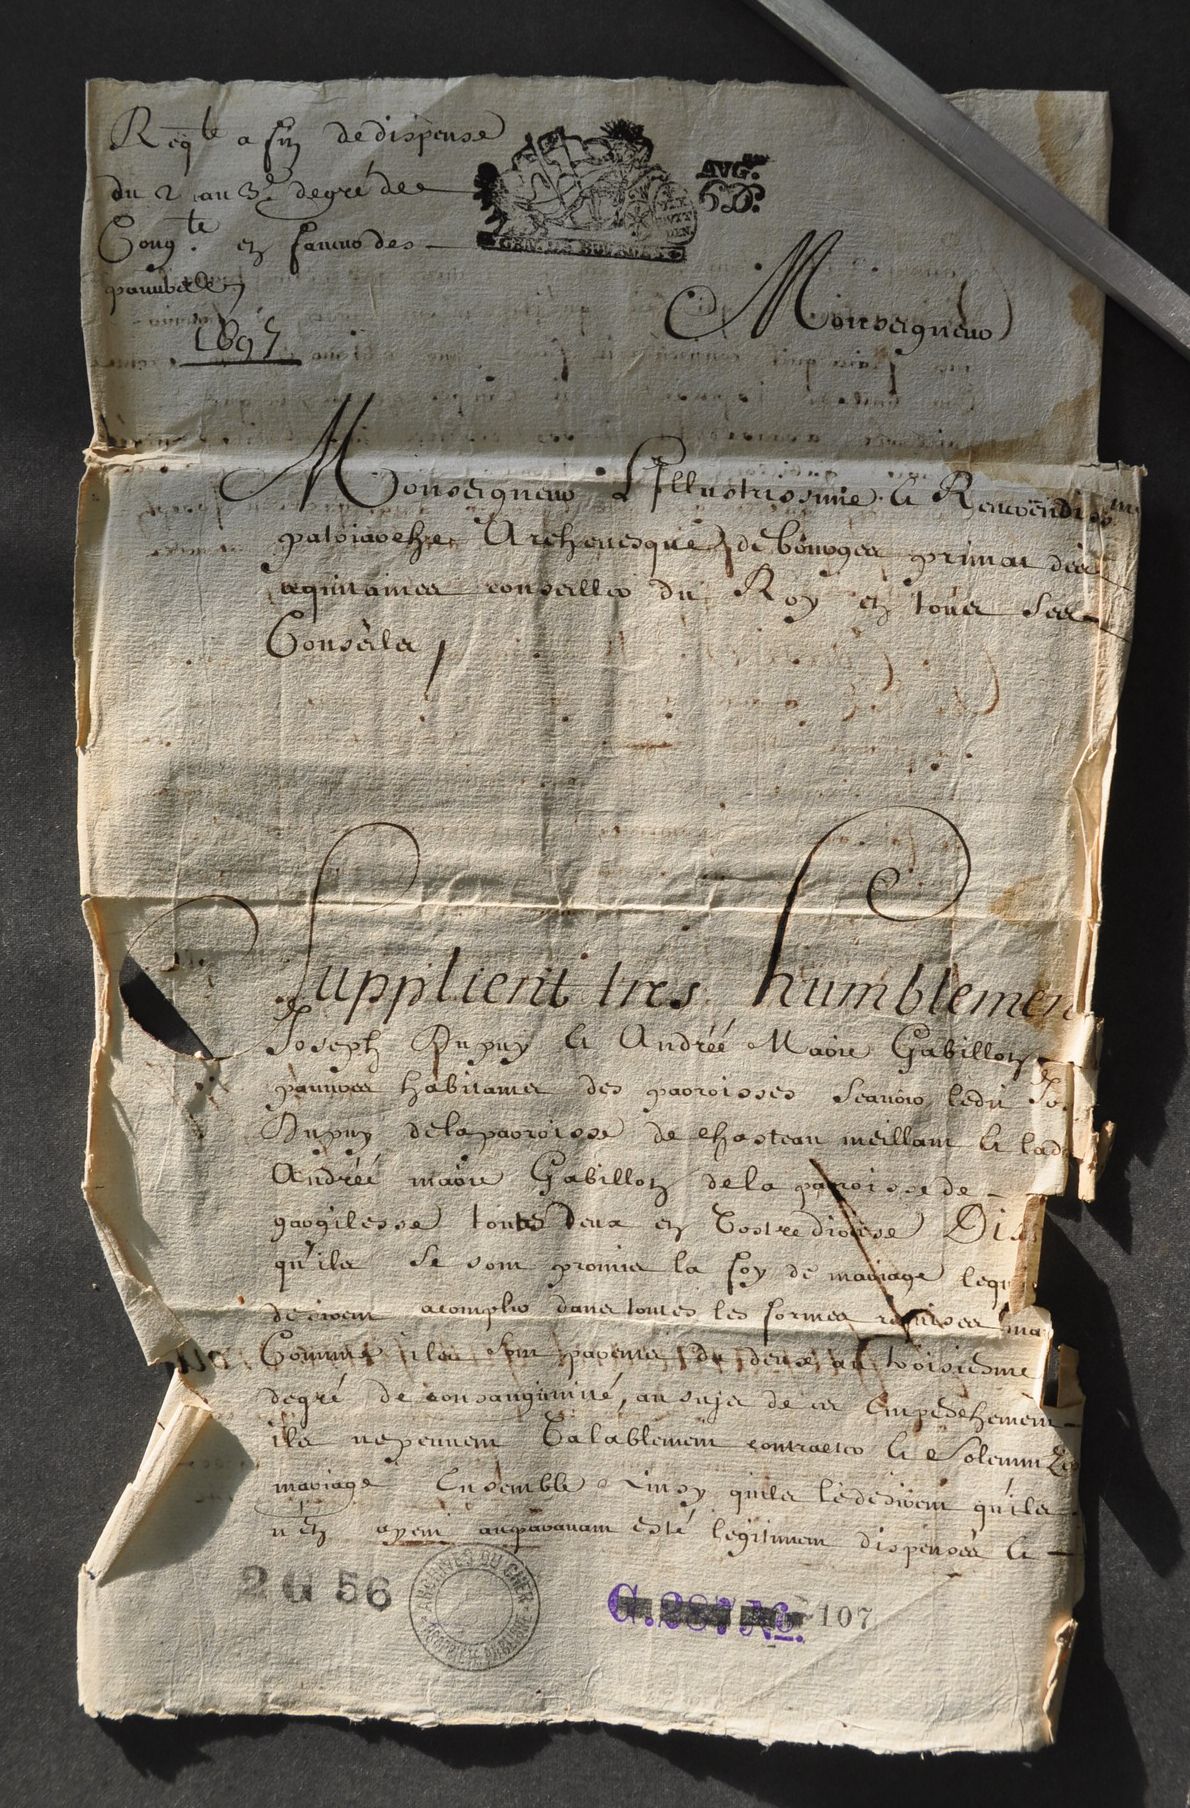 Reqte a fin de dispense
du 2 au 3e degré de
Cong.te en faveur des
pauvres
1697
AVG.on
6D.
GEN. DE BOURGES
Monseigneur
Monseigneur L'Illustrissime & Reverendissme
patriarche Archevesque de bourges primat des
aquitaines conseiller du Roy en tous ses
Conseils
Supplient tres humblement
Joseph Dupuy & Andréé Marie Gabillon
pauvres habitants des parroisses scavoir ledit Jo
Dupuy de la parroisse de chasteau meillant & lad
Andréé marie Gabillon de la parroisse de
gargilesse touts deux en Vostre diocese Dis
qu'ils se sont promis la foy de mariage lequ
desirent acomplir dans toutes les formes requises ma
Comme ils sont parents du deux au troisiesme
degré de consanguinité, au sujet de cet Empeschement
ils ne peuvent Valablement contracter & Solemniz
mariage Ensemble ainsy qu'ils le desirent qu'ils
n'en ayent auparavant esté legitimem dispensés &
2 G 56
ARCHIVES DU CHER
PROPRIÉTÉ PUBLIQUE
G. 287 No. 107